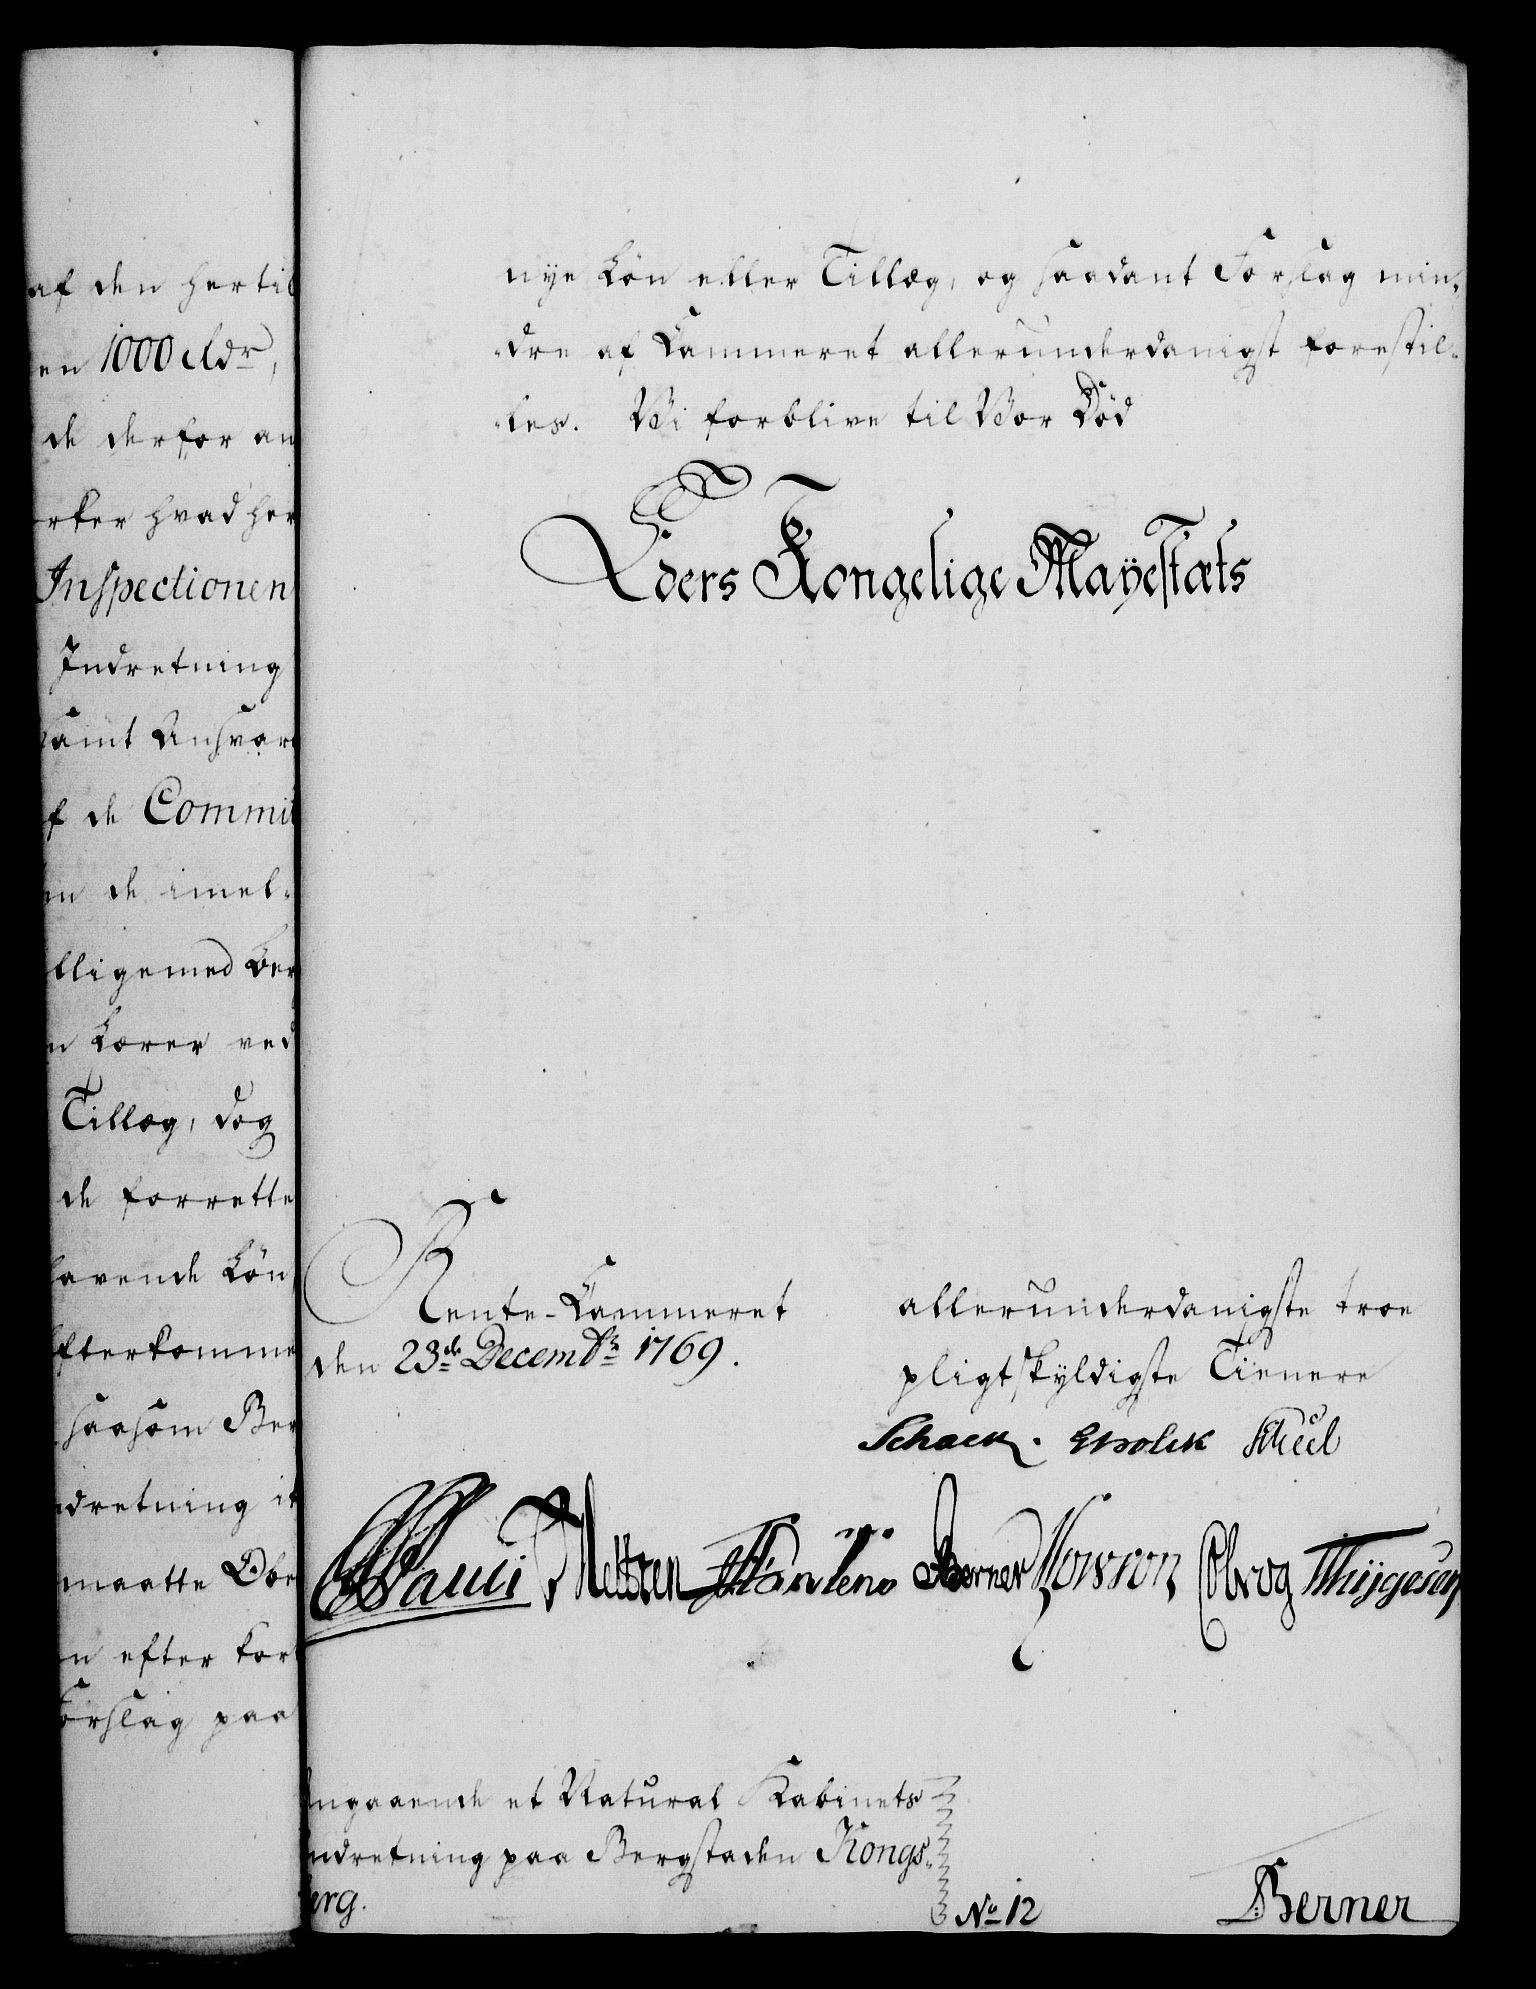 af den hertil
en 1000 Rdr,
de derfor an
rker hvad her
Inspectionen
Indretning
samt Ansvar
f de Commi
en de imel-
lligemed Ber
n Lærer ved
Tillæg, dog
de forrette
havende Løn
fterkomme
saasom Ber
ndretning it
maatte Ober
n efter kor
Forslag paa
nye Løn eller Tillæg, og saadant Forslag min-
dre af Cammeret allerunderdanigst forestil-
les. Vi forblive til Vor Død
Eders Kongelige Mayestæts
Rente-Cammeret
den 23de Decembr 1769.
allerunderdanigste troe
pligtskyldigste Tienere
Schack. Scheel
Pauli Berner Cobrog Thygesen
Angaaende et Natural Kabinets
Indretning paa Bergstaden Kongs-
berg.
No 12
Berner